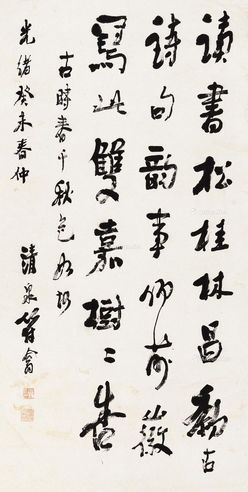 读書松桂林昌勳古
詩句韻事仰前徽
寫此雙嘉樹二
古時春千秋色如
光緒癸未春仲
清泉